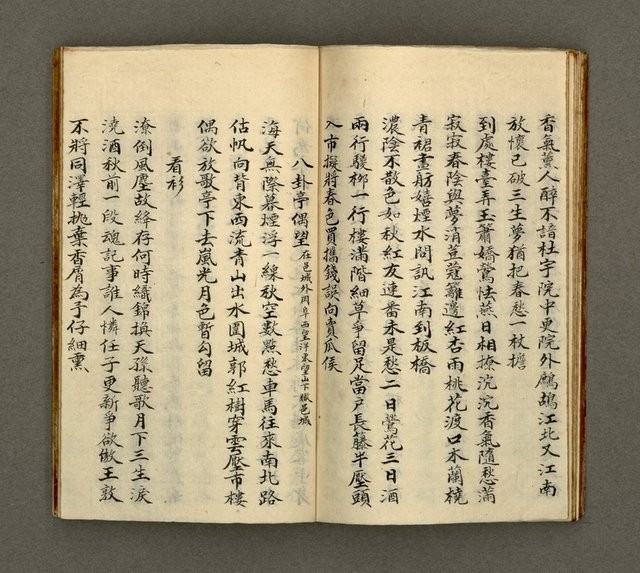 香氣薰人醉不諳杜宇院中更院外鷓鴣江北又江南
放懷已破三生夢猶把春愁一杖擔
到處樓臺弄玉簫嬌鶯怯燕日相撩沉沉香氣隨愁滿
寂寂春陰與夢消荳蔻籬邊紅杏雨桃花渡口木蘭橈
青裙畫舫嬉煙水問訊江南到板橋
濃陰不散色如秋紅友連番未是愁二日鶯花三日酒
兩行驛柳一行樓滿階細草爭留足當戶長藤半壓頭
入市擬將春色買攜錢誤向賣瓜侯
八卦亭偶望在邑城外岡阜西望洋東望山下嶽邑城
海天無際暮煙浮一線秋空數點愁車馬往來南北路
估帆向背東西流青山出水圍城郭紅樹穿雲壓市樓
偶欲放歌亭下去風光月色暫勾留
看衫
潦倒風塵故絳存何時織錦換天孫聽歌月下三生淚
澆酒秋前一段魂記事誰人憐任子更新爭欲傲王敦
不將同澤輕拋棄香屑為予仔細熏